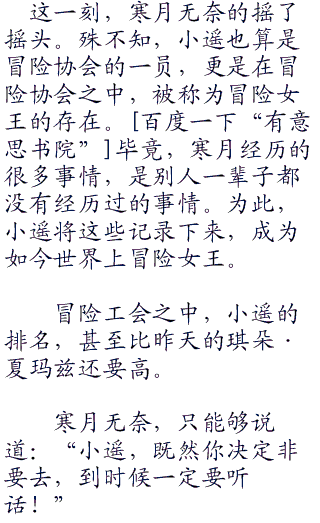 这一刻，寒月无奈的摇了
摇头。殊不知，小遥也算是
冒险协会的一员，更是在冒
险协会之中，被称为冒险女
王的存在。[百度一下“有意
思书院”]毕竟，寒月经历的
很多事情，是别人一辈子都
没有经历过的事情。为此，
小遥将这些记录下来，成为
如今世界上冒险女王。
冒险工会之中，小遥的
排名，甚至比昨天的琪朵·
夏玛兹还要高。
寒月无奈，只能够说
道：“小遥，既然你决定非
要去，到时候一定要听
话！”